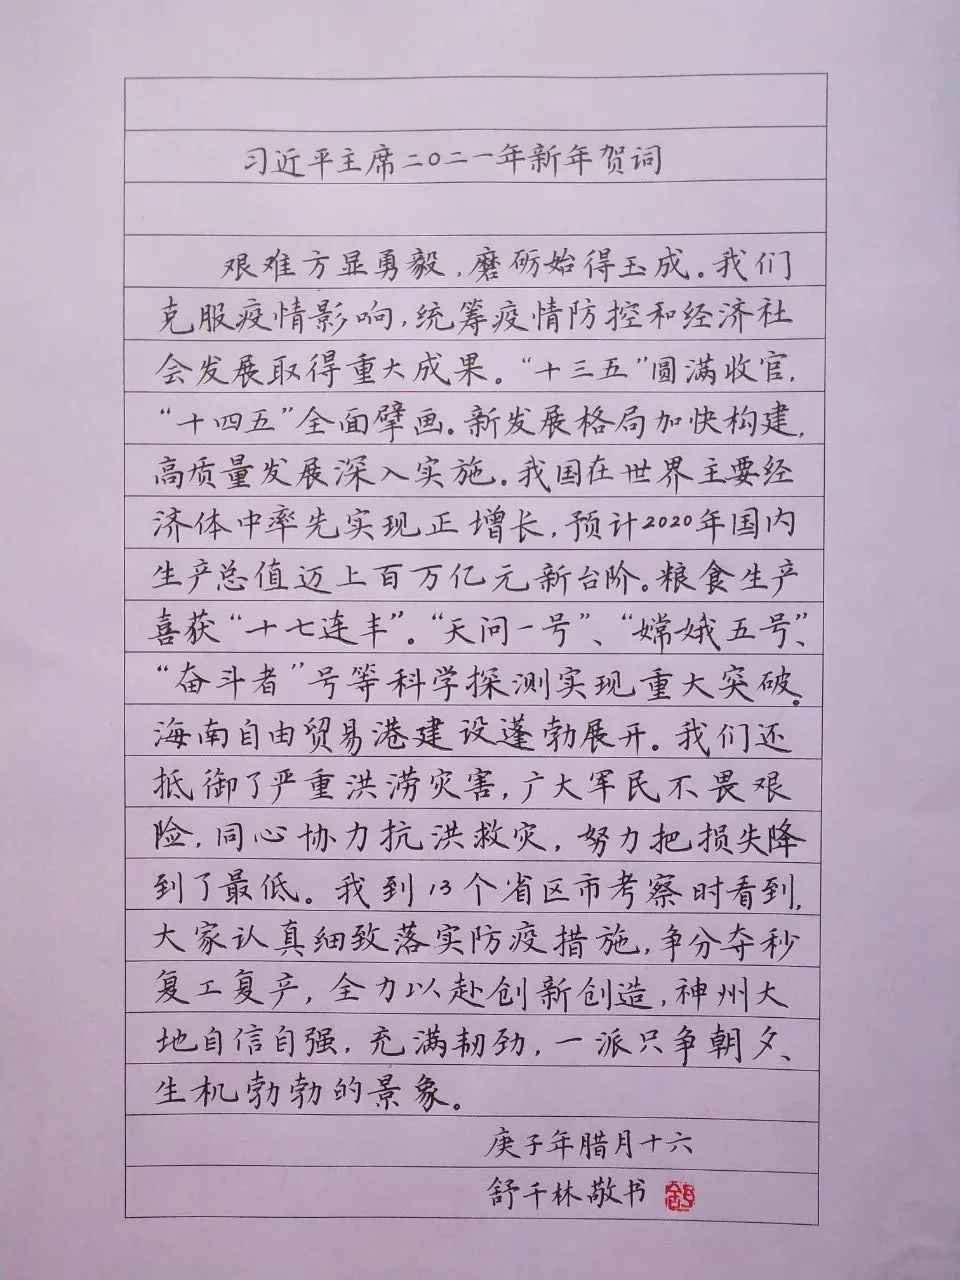 习近平主席二〇二一年新年贺词
艰难方显勇毅，磨砺始得玉成。我们
克服疫情影响，统筹疫情防控和经济社
会发展取得重大成果。“十三五”圆满收官，
“十四五”全面擘画。新发展格局加快构建，
高质量发展深入实施。我国在世界主要经
济体中率先实现正增长，预计2020年国内
生产总值迈上百万亿元新台阶。粮食生产
喜获“十七连丰”。“天问一号”、“嫦娥五号”、
“奋斗者”号等科学探测实现重大突破。
海南自由贸易港建设蓬勃展开。我们还
抵御了严重洪涝灾害，广大军民不畏艰
险，同心协力抗洪救灾，努力把损失降
到了最低。我到13个省区市考察时看到，
大家认真细致落实防疫措施，争分夺秒
复工复产，全力以赴创新创造，神州大
地自信自强，充满韧劲，一派只争朝夕、
生机勃勃的景象。
庚子年腊月十六
舒千林敬书
舒